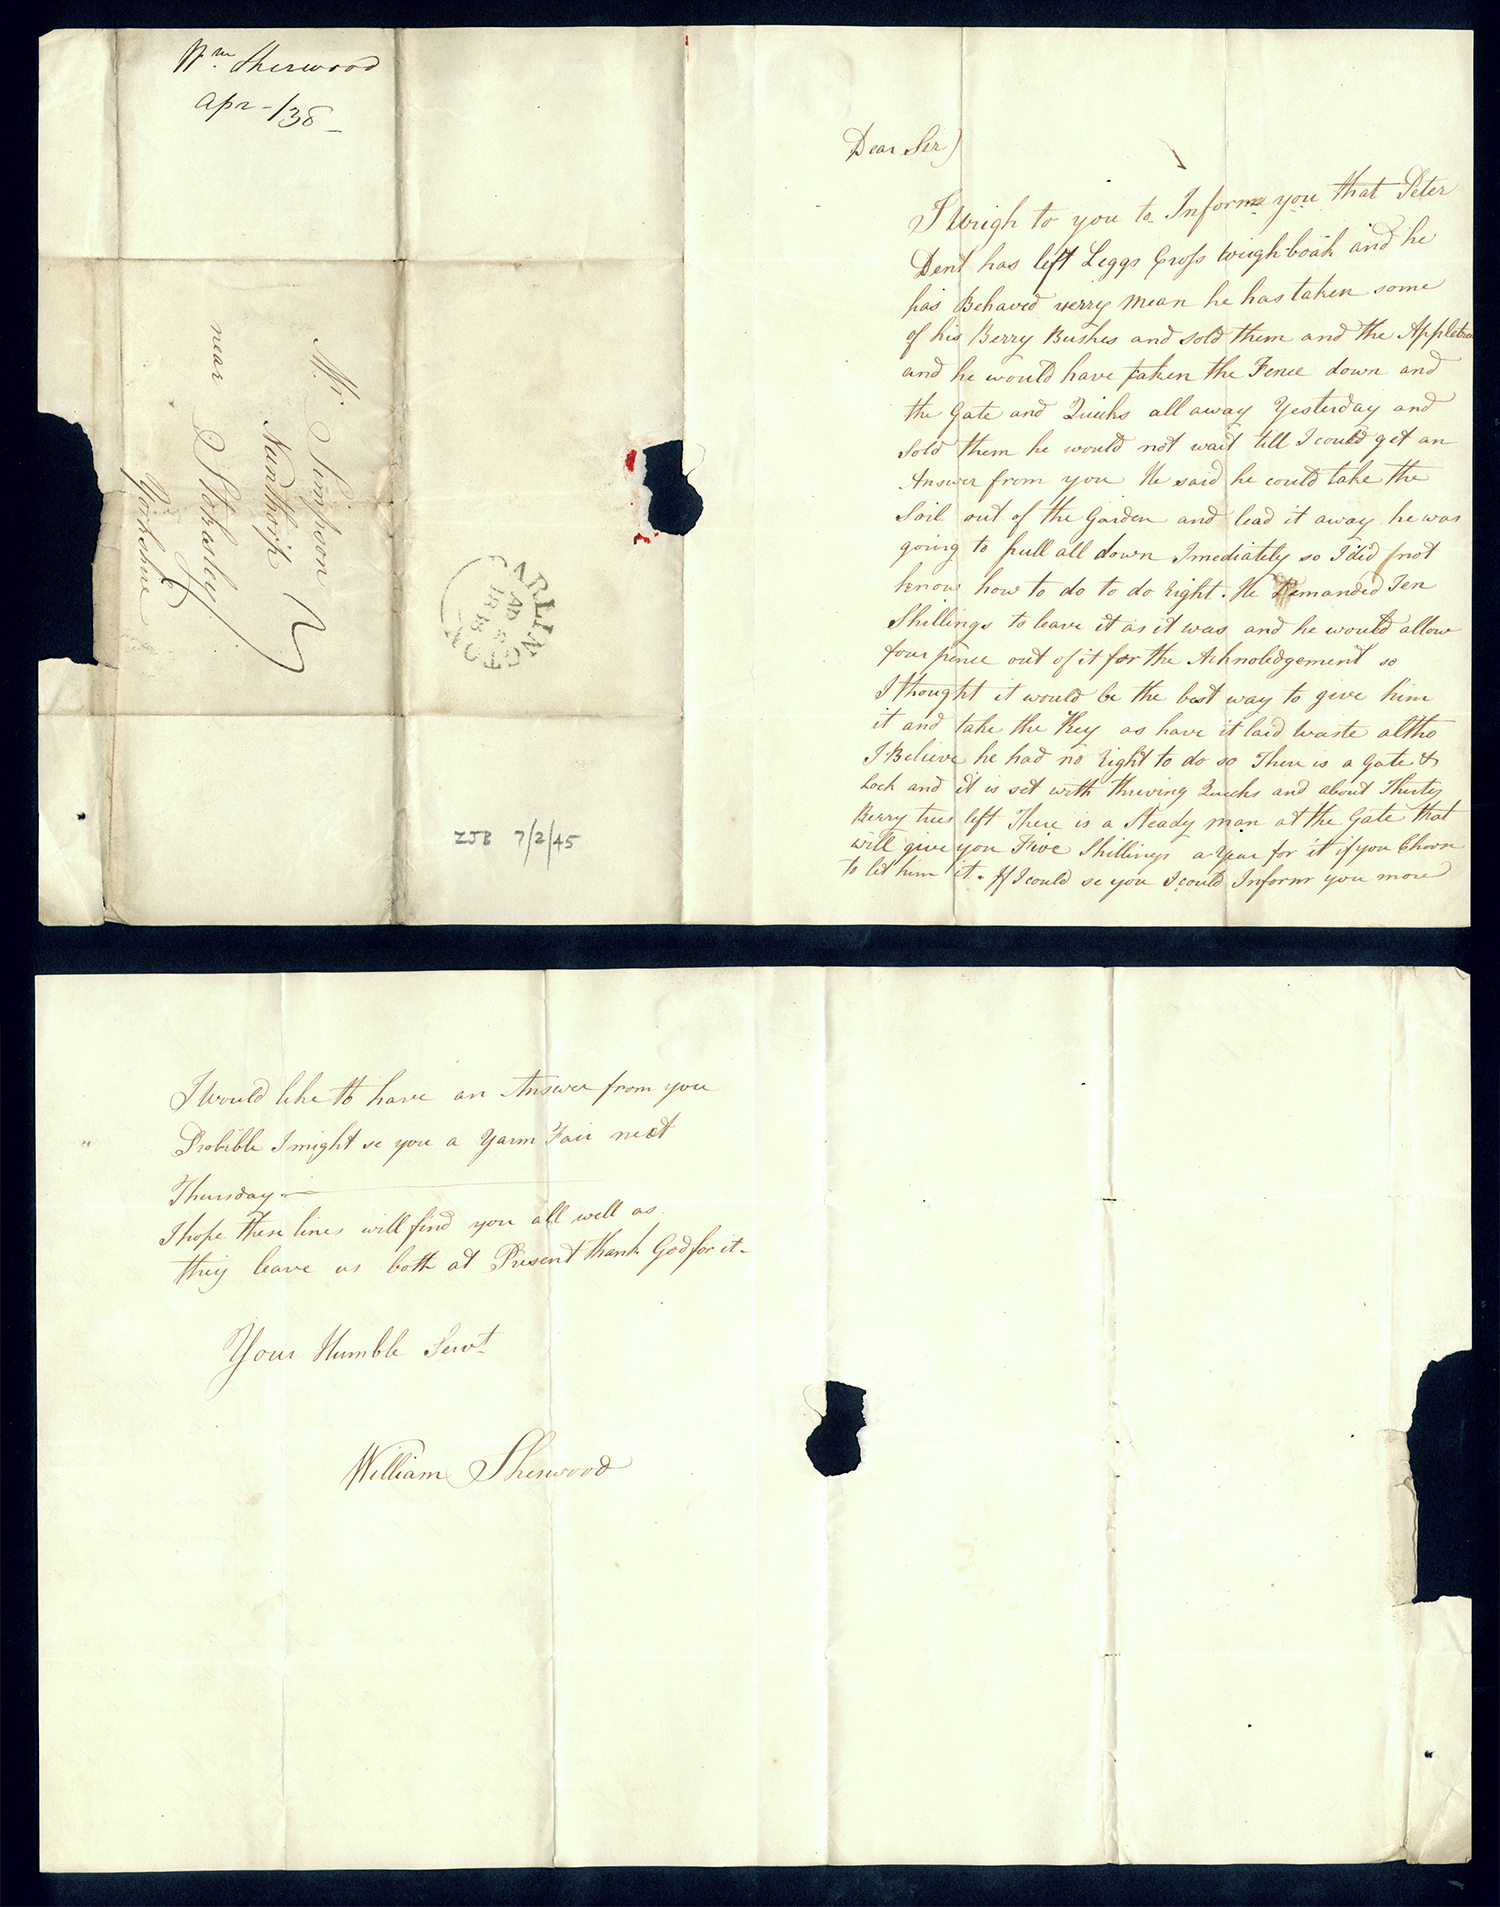 Wm. Sherwood
Apr - /38 -
Mr. Simpson
Nunthorp
near Stokesley
Yorkshire
DARLINGTON
AP
1838
ZJB 7/2/45
Dear Ser)
I Wrigh to you to Inform you that Peter
Dent has left Leggs Cross Weigh-boak and he
has Behaved verry mean he has taken some
of his Berry Bushes and sold them and the Appletree
and he would have taken the Fence down and
the Gate and Quicks all away Yesterday and
Sold them he would not wait till I could get an
Answer from you He said he could take the
Soil out of the Garden and lead it away he was
going to pull all down Imediately so I did not
know how to do to do right. He Demanded Ten
Shillings to leave it as it was and he would allow
four pence out of it for the Acknoledgement so
I thought it would be the best way to give him
it and take the Key as have it laid Waste altho
I Believe he had no right to do so There is a Gate &
Lock and it is set with thriving Quicks and about Thirty
Berry trees left There is a Steady man at the Gate that
will give you Five Shillings a Year for it if you Choose
to let him it. If I could se you I could Inform you more
I Would like to have an Answer from you
Probible I might se you a Yarm Fair next
Thursday.
I hope these lines will find you all well as
they leave us both at Present thank God for it-
Your Humble Servt
William Sherwood